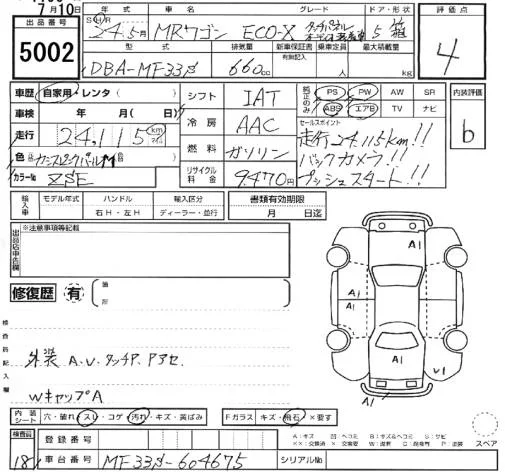 7月10日
出品番号
5002
年式 車名 グレード ドア・形状
S H R 24年5月 MRワゴン ECO-X タッチパネル 5 箱
型式 排気量 新車保証書 乗車定員 最大積載量
有無記入
DBA-MF33S 660cc 人 kg
評価点
4
車歴 自家用・レンタ( )
車検 年 月( 日)
走行 24,115 km マイル
色
カラーNo ZSE
シフト IAT
冷房 AAC
燃料 ガソリン
リサイクル料金 9,470円
純正のみ PS PW AW SR
ABS エアB TV ナビ
セールスポイント
走行24,115km!!
バックカメラ!!
プッシュスタート!!
内装評価
b
輸入車 モデル年式 ハンドル 輸入区分 書類有効期限
右H・左H ディーラー・並行 月 日迄
出品店申告欄
※注意事項等記載
修復歴 有 箇所
A1
A1
A1
A1
検査員記入欄
外装 A.U.タッチP.アセ.
WキャップA
内装シート 穴・破れ・スレ・コゲ・汚れ・キズ・黄ばみ
Fガラス キズ・飛石・×要す
スペア
A:キズ U:ヘコミ B:キズ&ヘコミ S:サビ
××:交換済 ×:交換要 W:波 C:腐食 P:塗装
検査員
181
登録番号
車台番号 MF33S-604675 シリアルNo